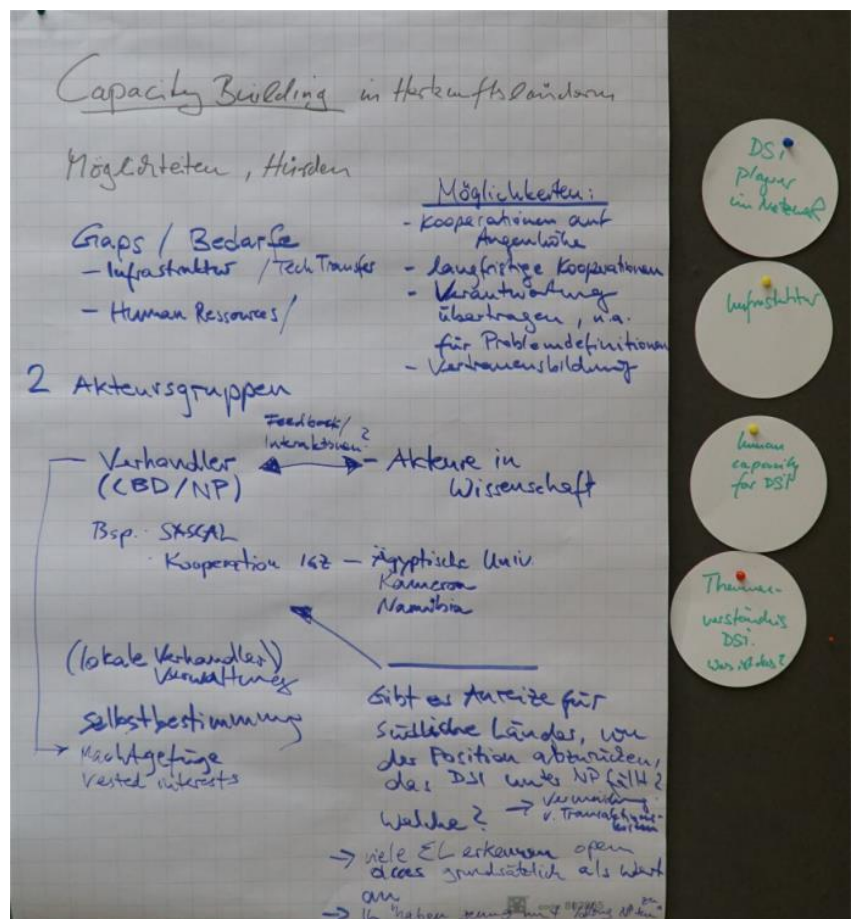 Capacity Building in Herkunftsländern
Möglichkeiten, Hürden
Gaps / Bedarfe
- Infrastruktur / Tech Transfer
- Human Ressources /
Möglichkeiten:
- Kooperationen auf
Augenhöhe
- langfristige Kooperationen
- Verantwortung
übertragen, u.a.
für Problemdefinitionen
- Vertrauensbildung
2 Akteursgruppen
Feedback/
Interaktionen?
- Verhandler
(CBD/NP)
- Akteure in
Wissenschaft
Bsp. SASCAL
Kooperation IGZ - Ägyptische Univ.
Kamerun
Namibia
(lokale Verhandler)
Verwaltung
selbstbestimmung
Machtgefüge
vested interests
Gibt es Anreize für
südliche Länder, von
der Position abzurücken,
das DSI unter NP fällt?
Welche? → Vermeidung
v. Transaktions-
kosten
→ viele EL erkennen open
access grundsätzlich als Wert
an
→
DSI
player
im
Infrastruktur
human
capacity
for DSI
Themen-
verständnis
DSI.
Was ist das?